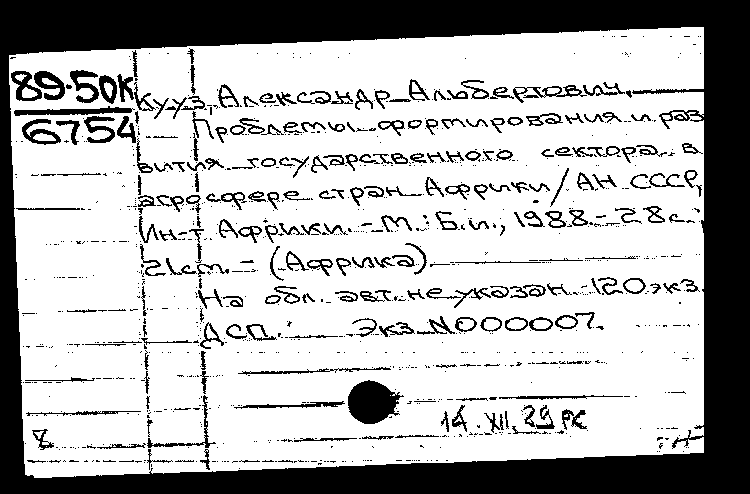 89-50К
6754
Кууз, Александр Альбертович.
Проблемы формирования и раз
вития государственного сектора в
агросфере стран Африки / АН СССР,
Ин-т Африки. - М.: Б.и., 1988. - 28 с.;
21 см. - (Африка).
На обл. авт. не указан. - 120 экз.
ДСП. Экз. N000007.
14. XII. 89